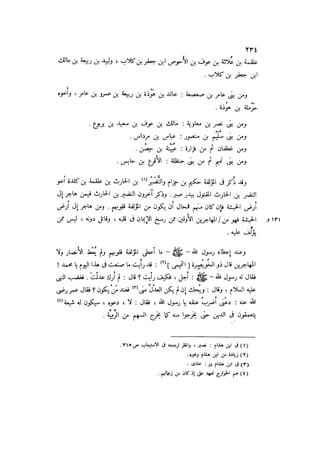 ٢٣٤
علقمة بن عُلاثة بن عوف بن الأَحوص ابن جعفر بن كلاب ، ولبيد بن ربيعة بن مالك
ابن جعفر بن كلاب .
ومن بنى عامر بن صعصعة : خالد بن هَوْذة بن ربيعة بن عمرو بن عامر ، وأخوه
حَرْملة بن هوذة .
ومن بنى نصر بن معاوية : مالك بن عوف بن سعيد بن يربوع .
ومن بنى سُلَيْم بن منصور : عباس بن مرداس .
ومن غطفان ثم من فزارة : عُيَيْنَة بن حِصْن .
ومن بنى تميم ثم من بنى حنظلة : الأَقرع بن حابس .
وقد ذُكر فى المؤلفة حكيم بن حِزام والنُّضَيْر (١) بن الحارث بن علقمة بن كلدة أخو
النضر بن الحارث المقتول ببدر صبر . وذكر آخرون النضير بن الحارث فيمن هاجر إلى
أرض الحبشة فإن كان منهم فمحال أن يكون من المؤلفة قلوبهم . ومن هاجر إلى أرض
١٣١ و الحبشة فهو من / المهاجرين الأولين ممن رسخ الإيمان فى قلبه ، وقاتل دونه ، ليس ممن
يؤلَّف عليه .
وعند إعطاء رسول الله - ﷺ - ما أعطى المؤلفة قلوبهم . ولم يُعْطِ الأَنصار ولا
المهاجرين قال ذو الخُوَيْصِرة [ التميمى ] (٢) : قد رأيت ما صنعت فى هذا اليوم يا محمد !
فقال له رسول الله - ﷺ - : أجل ، فكيف رأيت ؟ قال : لم أرك عدلت . فغضب النبى
عليه السلام ، وقال : ويْحك إن لم يكن العدلُ مِنّى (٣) فعند مَنْ يكون ؟ فقال عمر رضى
الله عنه : دعْنى أضرب عنقه يا رسول الله ، فقال : لا ، دعوه ، سيكون له شيعة (٤)
يتعمقون فى الدين حتى يخرجوا منه كما يخرج السهم من الرَّمِيَّة .
(١) فى ابن هشام : نصير ، وانظر ترجمته فى الاستيعاب ص ٣١٥ .
(٢) زيادة من ابن هشام وغيره .
(٣) فى ابن هشام ور : عندى .
(٤) هم الخوارج لعهد على إذ كان من زعمائهم .